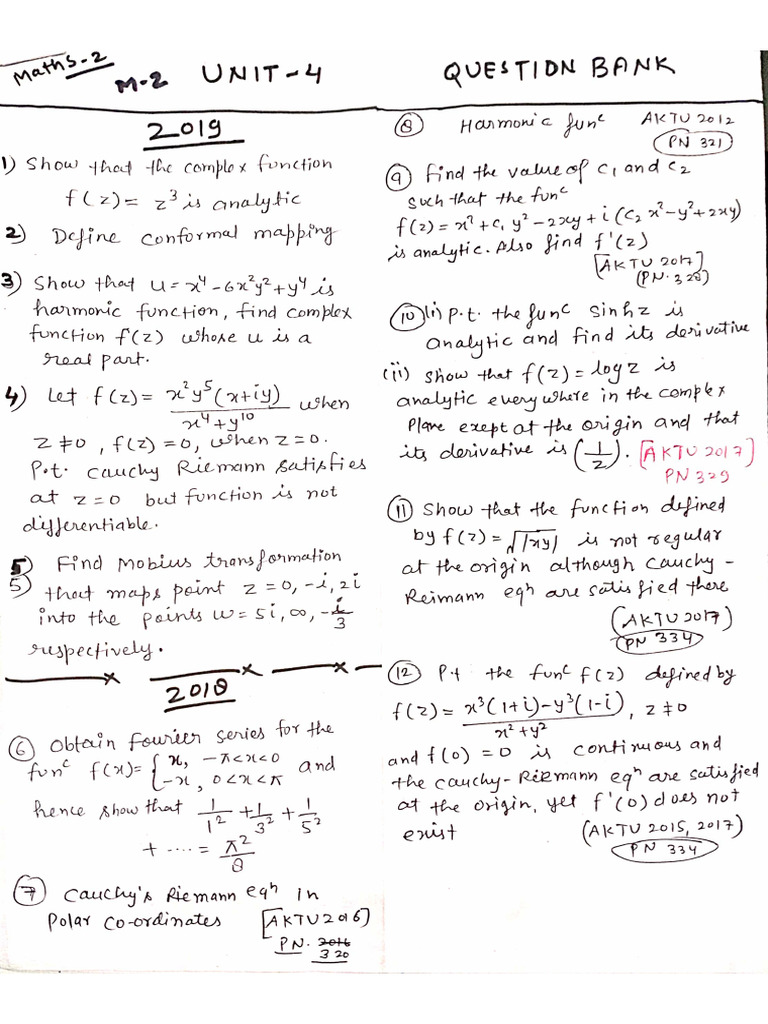 Maths-2
M-2 UNIT-4 QUESTION BANK
2019
1) Show that the complex function
f(z) = z³ is analytic
2) Define conformal mapping
3) Show that u = x⁴ - 6x²y² + y⁴ is
harmonic function, find complex
function f(z) whose u is a
real part.
4) Let f(z) = x²y⁵(x+iy) / x⁴+y¹⁰ when
z ≠ 0, f(z) = 0, when z = 0.
P.t. Cauchy Riemann satisfies
at z = 0 but function is not
differentiable.
5) Find Mobius transformation
5) that maps point z = 0, -i, 2i
into the points w = 5i, ∞, -i/3
respectively.
2018
6 Obtain fourier series for the
funᶜ f(x) = { x, -π<x<0
-x, 0<x<π and
hence show that 1/1² + 1/3² + 1/5²
+ ---- = π²/8
7 Cauchy's Riemann eqⁿ in
Polar co-ordinates [AKTU 2016]
PN. 2016
320
8 Harmonic funᶜ AKTU 2012
PN 321
9 Find the value of c₁ and c₂
such that the funᶜ
f(z) = x² + c₁ y² - 2xy + i(c₂ x² - y² + 2xy)
is analytic. Also find f'(z)
[AKTU 2017]
(PN. 328)
10 (i) P.t. the funᶜ sinhz is
analytic and find its derivative
(ii) Show that f(z) = logz is
analytic every where in the complex
Plane exept at the origin and that
its derivative is (1/z). [AKTU 2017]
PN 329
11 Show that the function defined
by f(z) = √|xy| is not regular
at the origin although Cauchy-
Reimann eqⁿ are satisfied there
(AKTU 2017)
PN 334
12 P.t the funᶜ f(z) defined by
f(z) = x³(1+i) - y³(1-i) / x²+y², z ≠ 0
and f(0) = 0 is continuous and
the cauchy-Riemann eqⁿ are satisfied
at the origin, yet f'(0) does not
exist (AKTU 2015, 2017)
PN 334